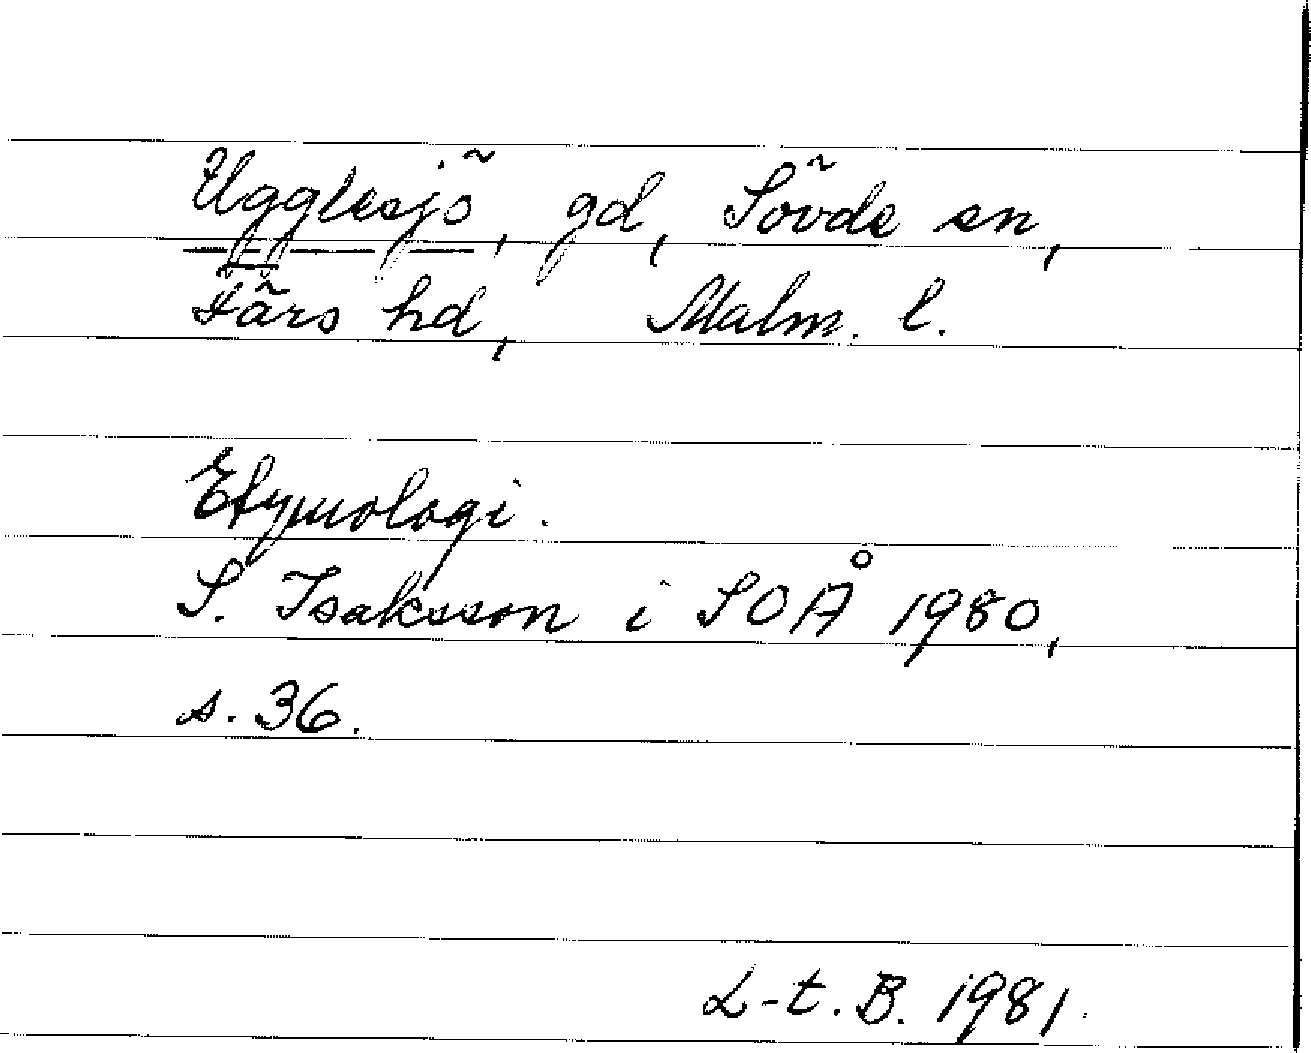 Ugglesjö, gd, Sövde sn,
Färs hd, Malm. l.
Etymologi.
S. Isaksson i SOÅ 1980,
s. 36.
L-t. B. 1981.